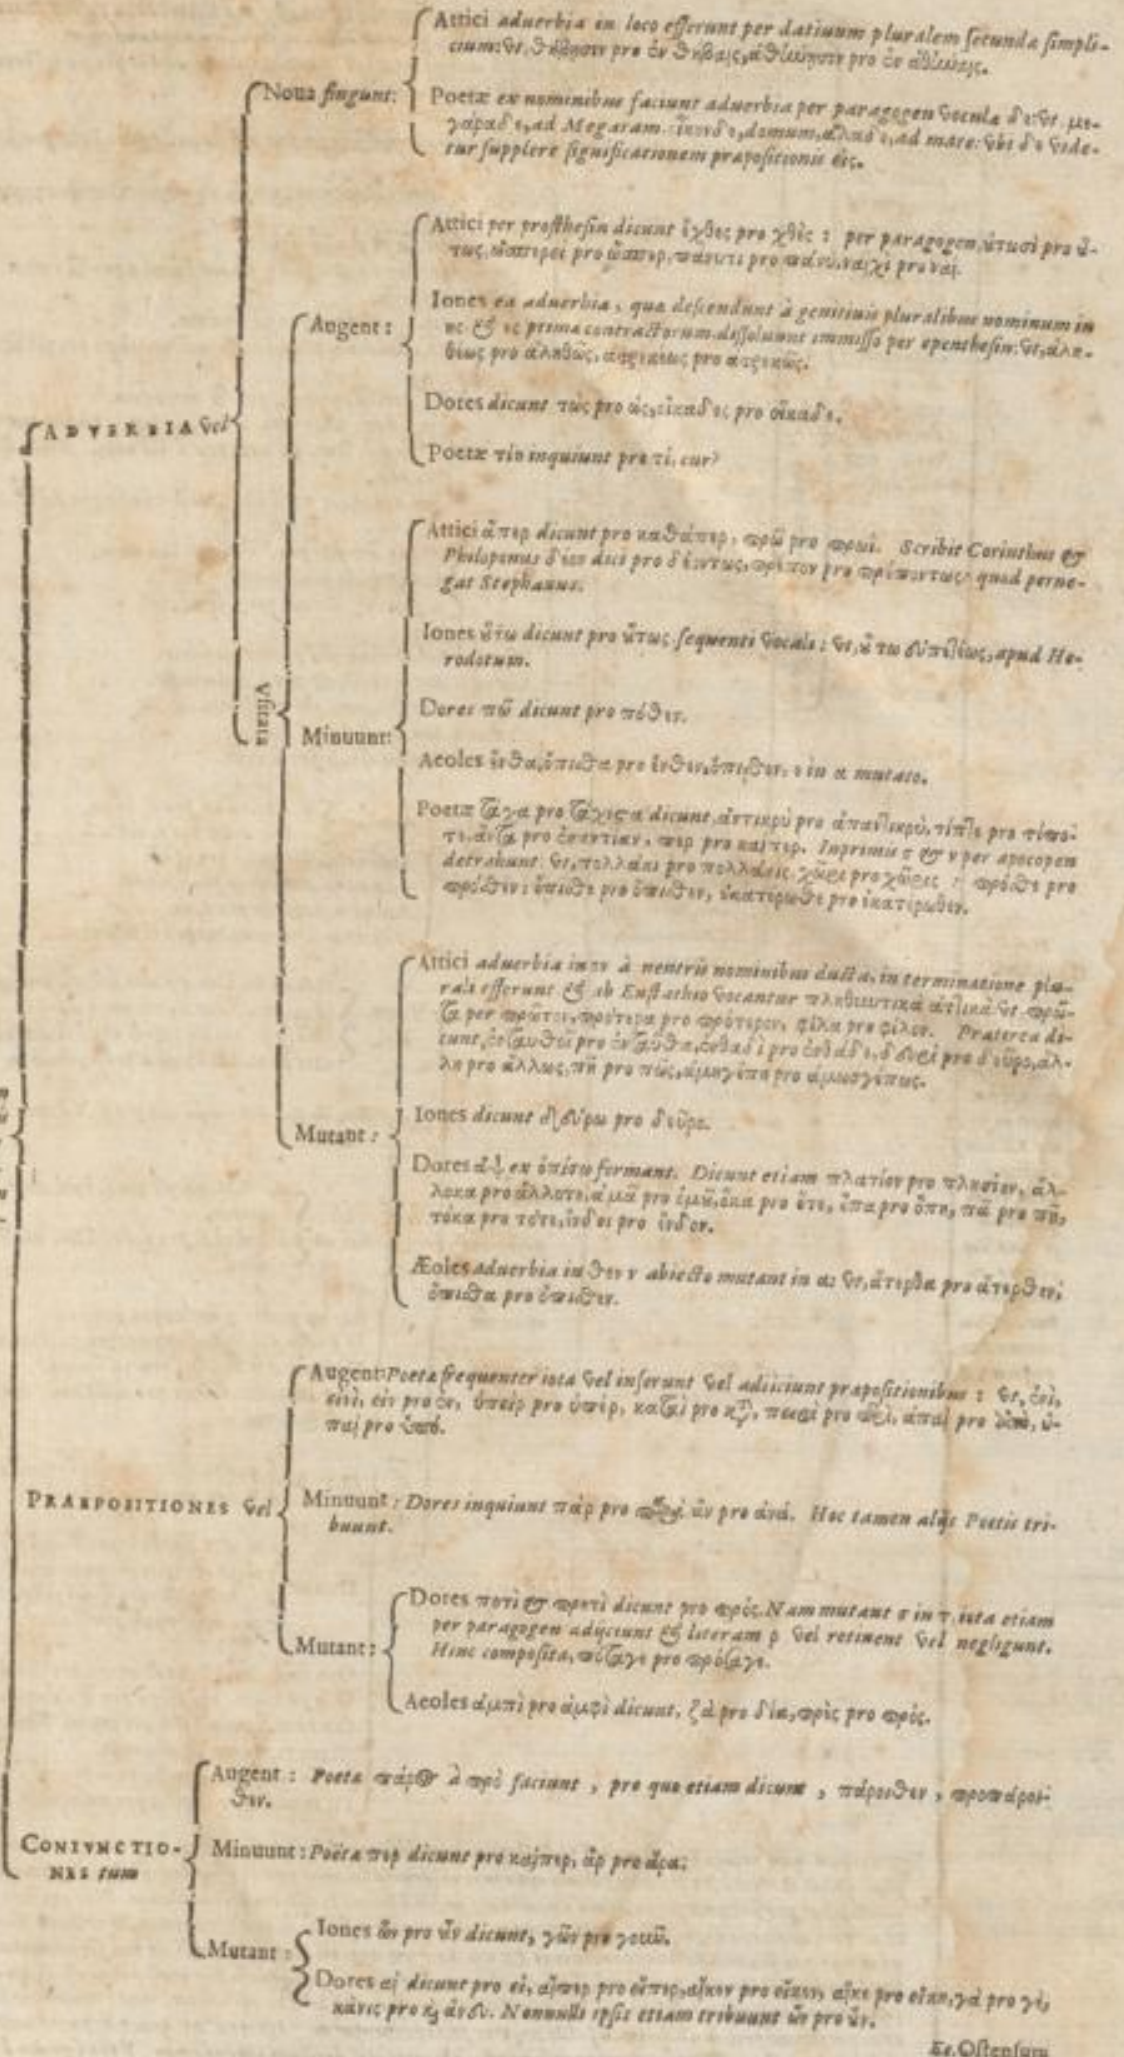 Attici aduerbia in loco efferunt per datiuum pluralem secundæ simpli-
cium: vt, Θήβησιν pro ἐν Θήβαις, ἀθήνησιν pro ἐν ἀθήναις.
Noua fingunt:
Poetæ ex nominibus faciunt aduerbia per paragogen voculæ δε: vt με-
γαράδε, ad Megaram. οἶκόνδε, domum, ἅλαδε, ad mare: vbi δε vide-
tur supplere significationem præpositionis εἰς.
Attici per prosthesin dicunt ἐχθὲς pro χθὲς : per paragogen, ὑτωσὶ pro ὕ-
τως, ὡσπερεὶ pro ὥσπερ, πάνυτι pro πάνυ, ναιχὶ pro ναί.
Augent :
Iones ea aduerbia, quæ descendunt à genitiuis pluralibus nominum in
ης & ες prima contractorum dissoluunt immisso ε per epenthesin: vt, ἀλη-
θέως pro ἀληθῶς, ἀτρεκέως pro ἀτρεκῶς.
Dores dicunt τὼς pro ὡς, οἴκαδες pro οἴκαδε.
ADVERBIA vel
Poetæ τίη inquiunt pro τί, cur?
Attici ἅπερ dicunt pro καθάπερ, πρῲ pro πρωί. Scribit Corinthus &
Philoponus δέον dici pro δεόντως, πρέπον pro πρεπόντως: quod perne-
gat Stephanus.
Iones ὕτω dicunt pro ὕτως sequente vocali : vt, ὕτω εὐπετέως, apud He-
rodotum.
Vsitata
Dores πῶ dicunt pro πόθεν.
Minuunt:
Aeoles ἔνθα, ὄπισθα pro ἔνθεν, ὄπισθεν, ε in α mutato.
Poetæ τάχα pro τάχιστα dicunt, ἀντικρὺ pro ἀπαντικρὺ, τίπτε pro τίποτ-
τε, ἄντα pro ἐναντίαν, περ pro καίπερ. Inprimis ς & ν per apocopen
detrahunt: vt, πολλάκι pro πολλάκις, χῶρι pro χῶρις : πρόσθε pro
πρόσθεν: ὄπισθε pro ὄπισθεν, ἑκατέρωθε pro ἑκατέρωθεν.
Attici aduerbia in ον à neutris nominibus ducta, in terminatione plu-
rali efferunt & ab Eustathio vocantur πληθυντικὰ ἀττικὰ: vt πρῶ-
τα per πρῶτον, πρότερα pro πρότερον, φίλα pro φίλον. Præterea di-
cunt, ἐνταυθοῖ pro ἐνταῦθα, ἐνθαδὶ pro ἐνθάδε, δευρὶ pro δεῦρο, ἄλ-
λη pro ἄλλως, πῆ pro πῶς, ἀμηγέπη pro ἀμωσγέπως.
Mutant :
Iones dicunt δεύρω pro δεῦρο.
Dores ἂψ ex ὀπίσω formant. Dicunt etiam πλατίον pro πλησίον, ἄλ-
λοκα pro ἄλλοτε, ἁμᾶ pro ἁμῆ, ὅκα pro ὅτε, ὅπα pro ὅπη, πᾶ pro πῆ,
τόκα pro τότε, ἔνδοι pro ἔνδον.
Æoles aduerbia in θεν ν abiecto mutant in α: vt, ἄτερθα pro ἄτερθεν,
ὄπισθα pro ὄπισθεν.
Augent: Poetæ frequenter iota vel inserunt vel adiiciunt præpositionibus : vt, ἐνὶ,
εἰνὶ, εἰν pro ἐν, ὑπεὶρ pro ὑπὲρ, καταὶ pro κατὰ, περὶ pro περὶ, ἀπαὶ pro ἀπὸ, ὑ-
παὶ pro ὑπό.
PRAEPOSITIONES vel
Minuunt : Dores inquiunt πὰρ pro παρὰ, ἂν pro ἀνά. Hoc tamen alij Poetis tri-
buunt.
Dores ποτὶ & προτὶ dicunt pro πρός. Nam mutant σ in τ, iota etiam
per paragogen adijciunt & literam ρ vel retinent vel negligunt.
Mutant:
Hinc composita, πόταγε pro πρόσαγε.
Aeoles ἀμπὶ pro ἀμφὶ dicunt, ζὰ pro δία, πρὲς pro πρός.
Augent : Poetæ πάρος à πρὸ faciunt, pro quo etiam dicunt, πάροιθεν, προπάροι-
θεν.
CONIVNCTIO-
NES tum
Minuunt : Poëtæ περ dicunt pro καίπερ, ἂρ pro ἄρα.
Mutant :
Iones ὦν pro ὖν dicunt, γῶν pro γοῦν.
Dores αἰ dicunt pro εἰ, αἴπερ pro εἴπερ, αἴκεν pro εἴκεν, αἴκε pro εἴκε, γὰ pro γὲ,
κἄνις pro ἄνευ. Nonnulli ipsis etiam tribuunt ὦν pro ὖν.
Ee. Ostensum